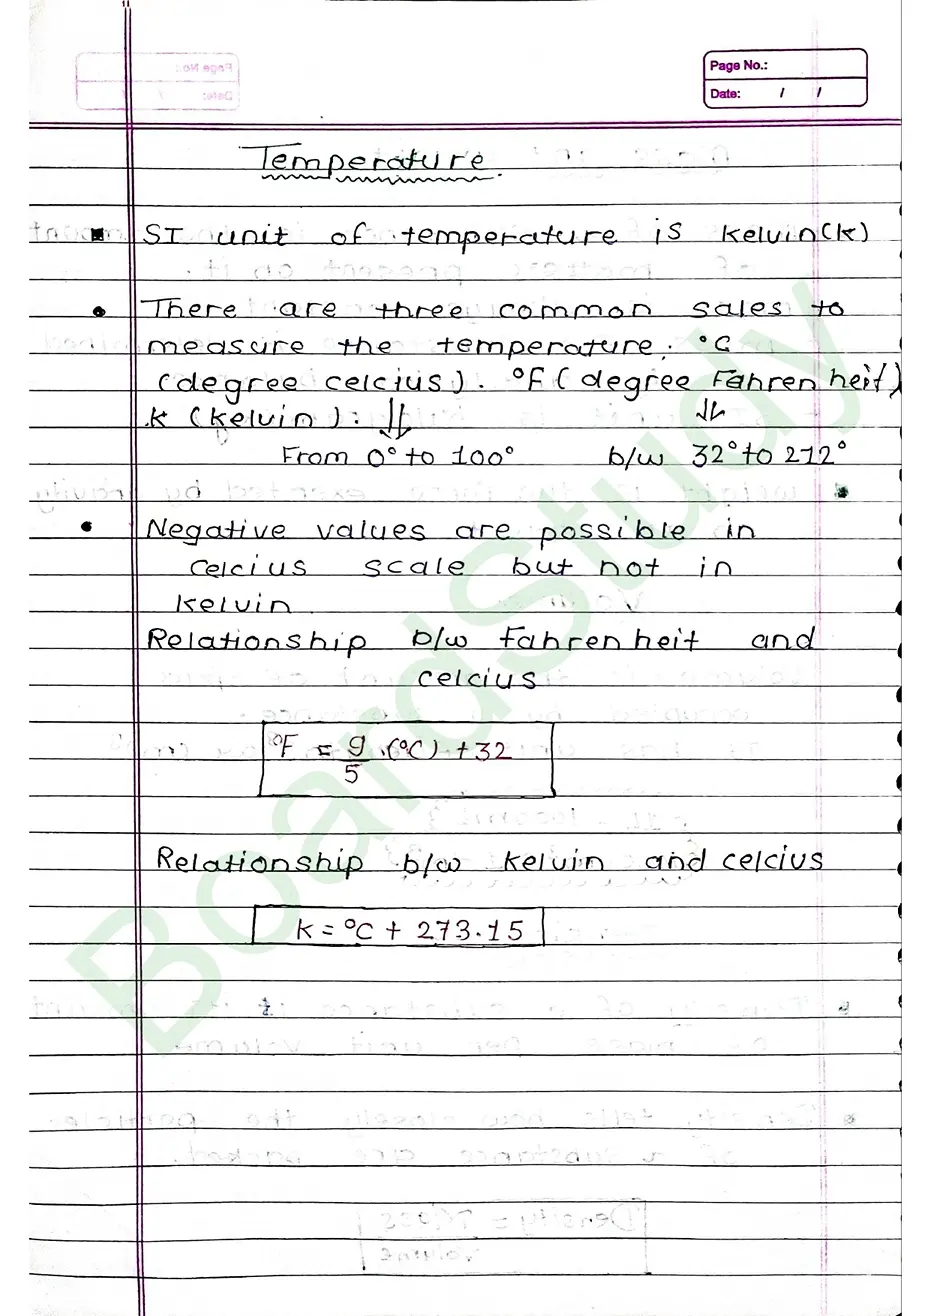 Page No.:
Date: / /
Temperature.
SI unit of temperature is kelvin(k)
There are three common sales to
measure the temperature. °C
(degree celcius). °F (degree Fahrenheit)
k (kelvin).
From 0° to 100° b/w 32° to 212°
Negative values are possible in
celcius scale but not in
kelvin.
Relationship b/w Fahrenheit and
celcius
°F = 9/5 (°C) + 32
Relationship b/w kelvin and celcius
k = °C + 273.15
BoardStudy